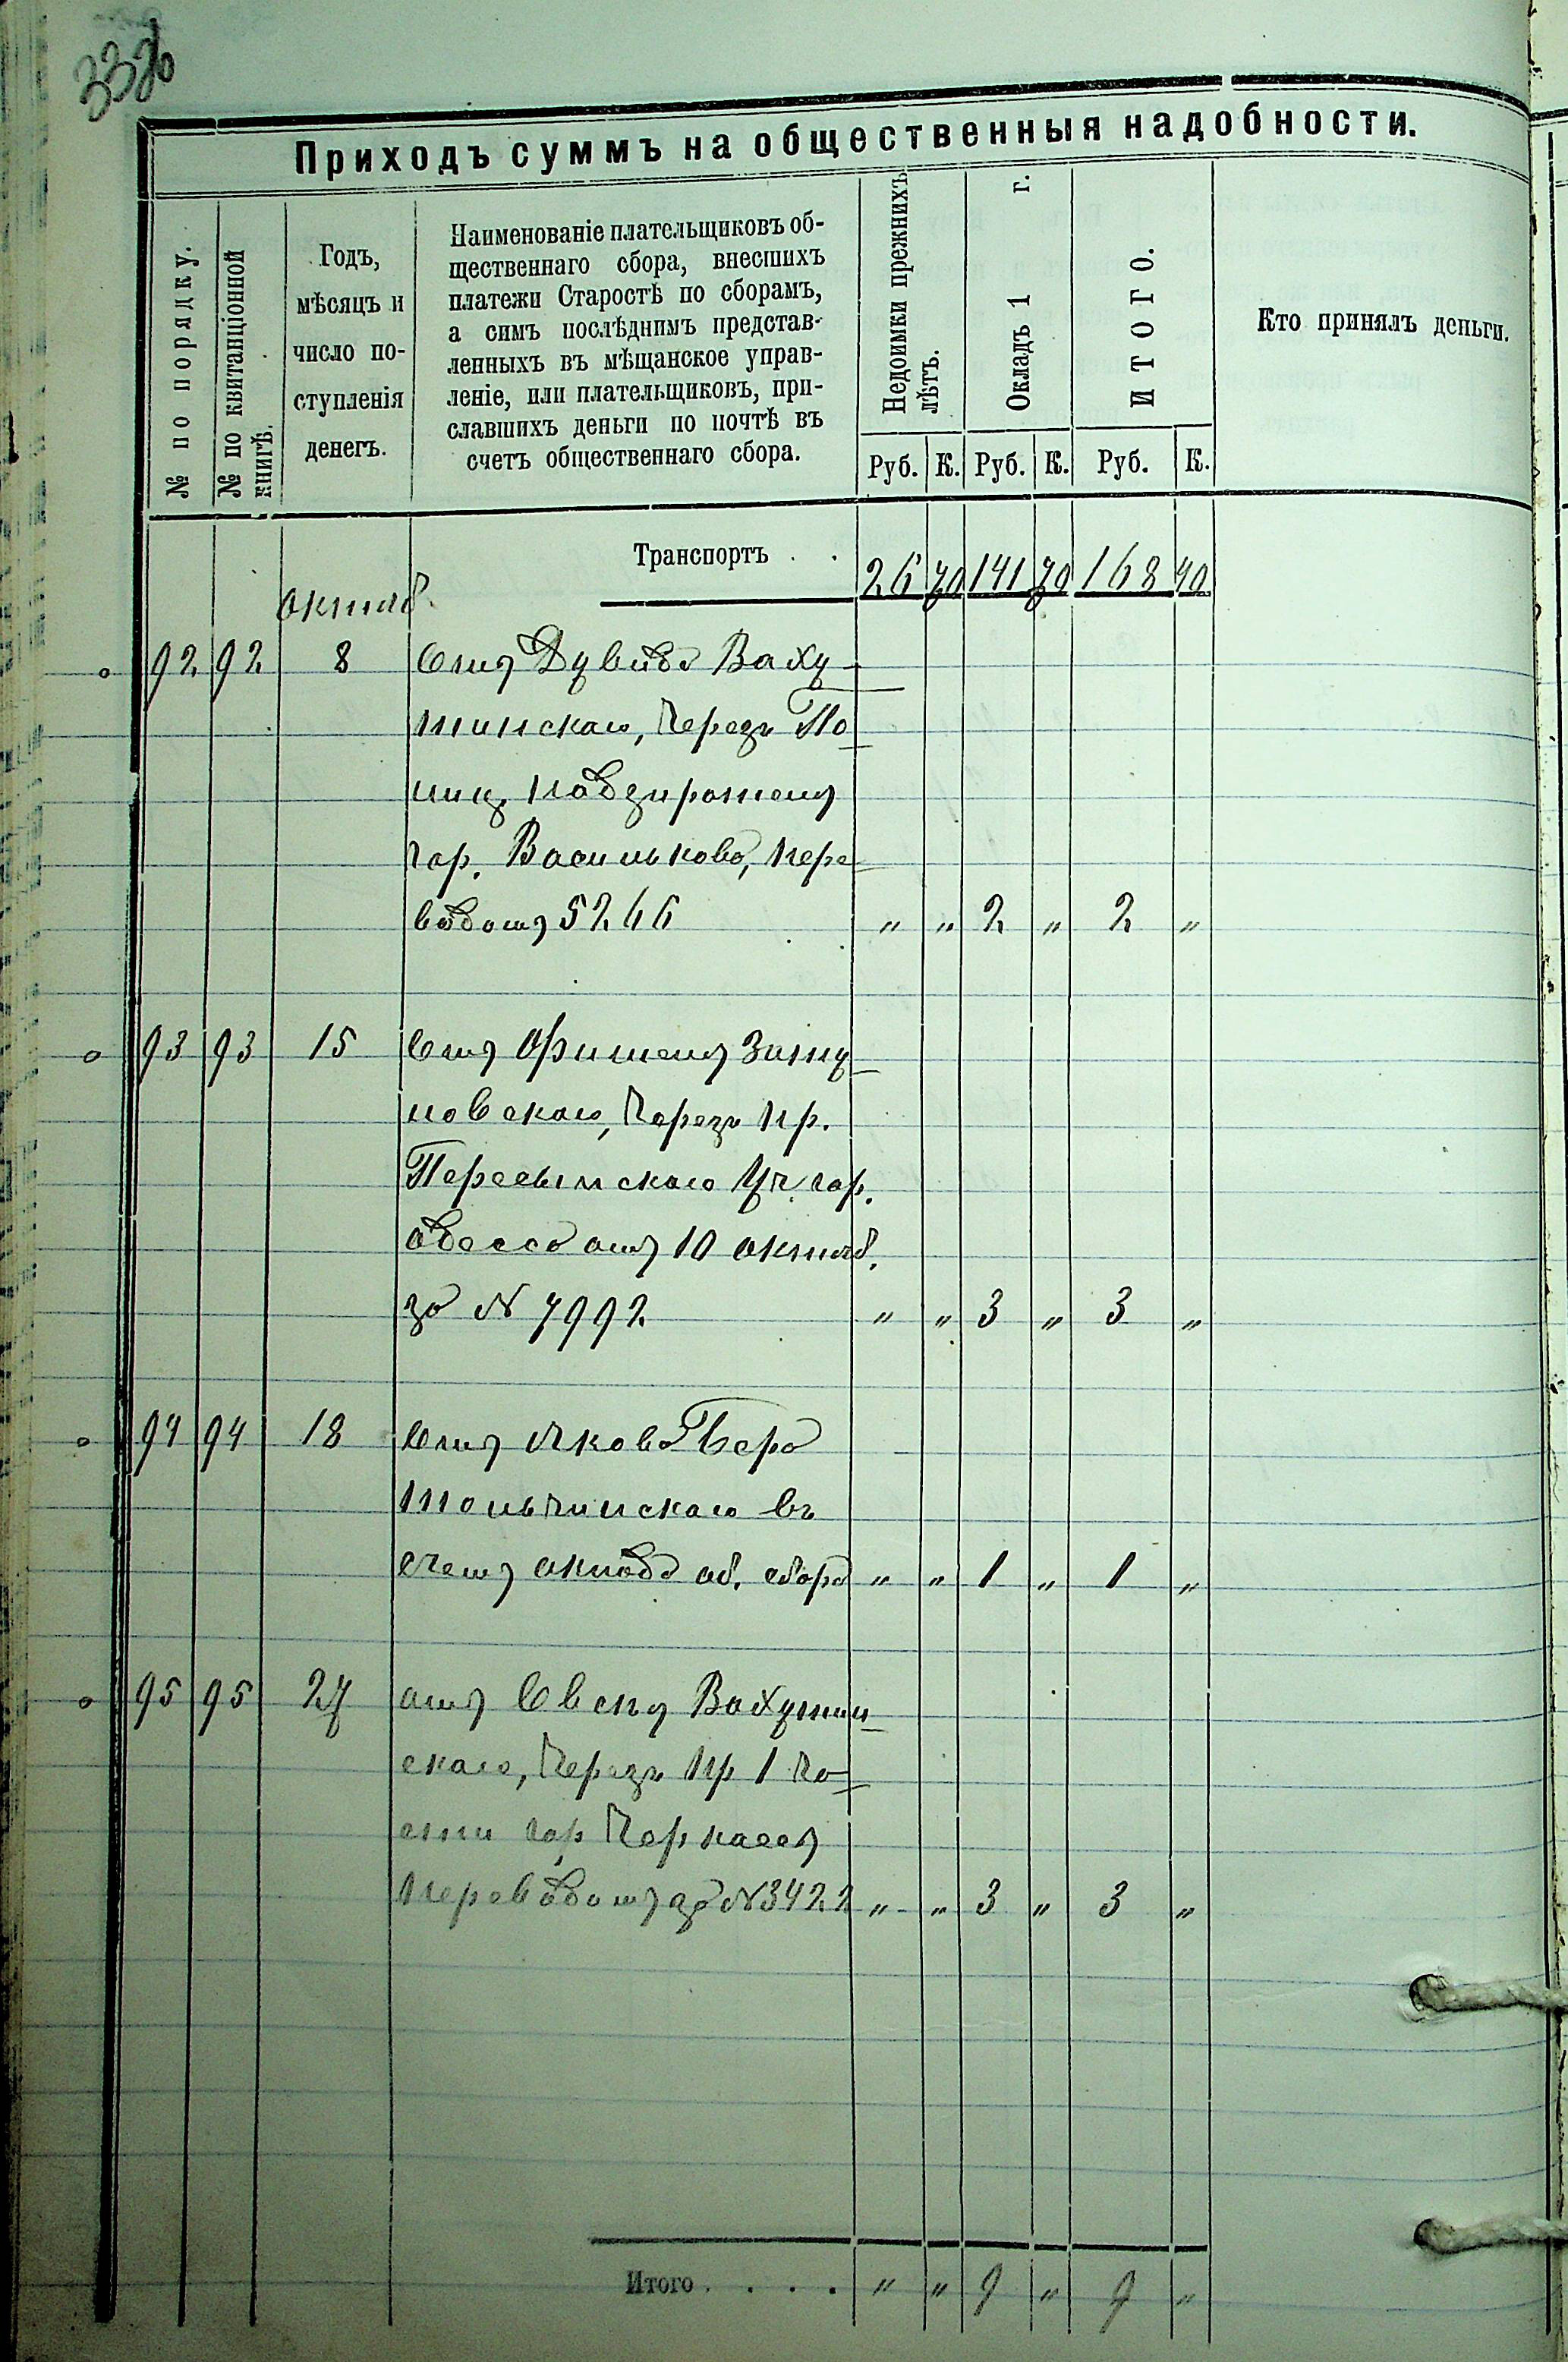 Приходъ суммъ на общественныя надобности.
№ по порядку.
№ по квитанціонной
книгѣ.
Годъ,
мѣсяцъ и
число по-
ступленія
денегъ.
Наименованіе плательщиковъ об-
щественнаго сбора, внесшихъ
платежи Старостѣ по сборамъ,
а симъ послѣднимъ представ-
ленныхъ въ мѣщанское управ-
леніе, или плательщиковъ, при-
славшихъ деньги по почтѣ въ
счетъ общественнаго сбора.
Недоимки прежнихъ
лѣтъ.
Окладъ 1 г.
ИТОГО.
Кто принялъ деньги.
Руб. К. Руб. К. Руб. К.
Транспортъ . . 26 70 141 70 168 40
Октяб.
92 92 8 Отъ Дувида Ваху-
тинскаго, Черезъ По
лиц. надзирателя
гор. Василькова, пере-
водомъ 5266 „ „ 2 „ 2 „
93 93 15 Отъ Фишеля
новскаго, Черезъ пр.
Пересыпскаго Уч. гор.
Одесса отъ 10 октяб.
за № 7992 „ „ 3 „ 3 „
94 94 18 Отъ Якова Бера
Тальчинскаго въ
счетъ оклада об. сбора „ „ 1 „ 1 „
95 95 27 отъ Овсея Вахутин-
скаго, Черезъ пр 1 ча-
сти гор Черкассъ
Переводомъ за № 3422 „ „ 3 „ 3 „
Итого . . . . „ „ 9 „ 9 „